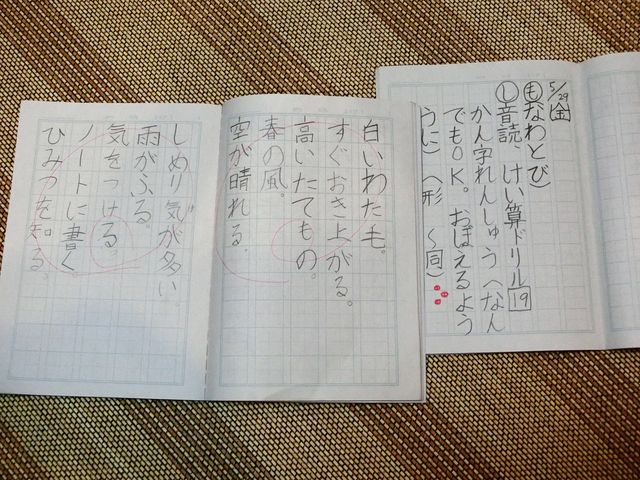 5/29金
もなわとび)
し音読 けい算ドリル19
かん字れんしゅう(なん
でもOK。おぼえるよう
うに)(形〜同)
白いわた毛。
すぐおき上がる。
高いたてもの。
春の風。
空が晴れる。
しめり気が多い
雨がふる。
気をつける。
ノートに書く
ひみつを知る。